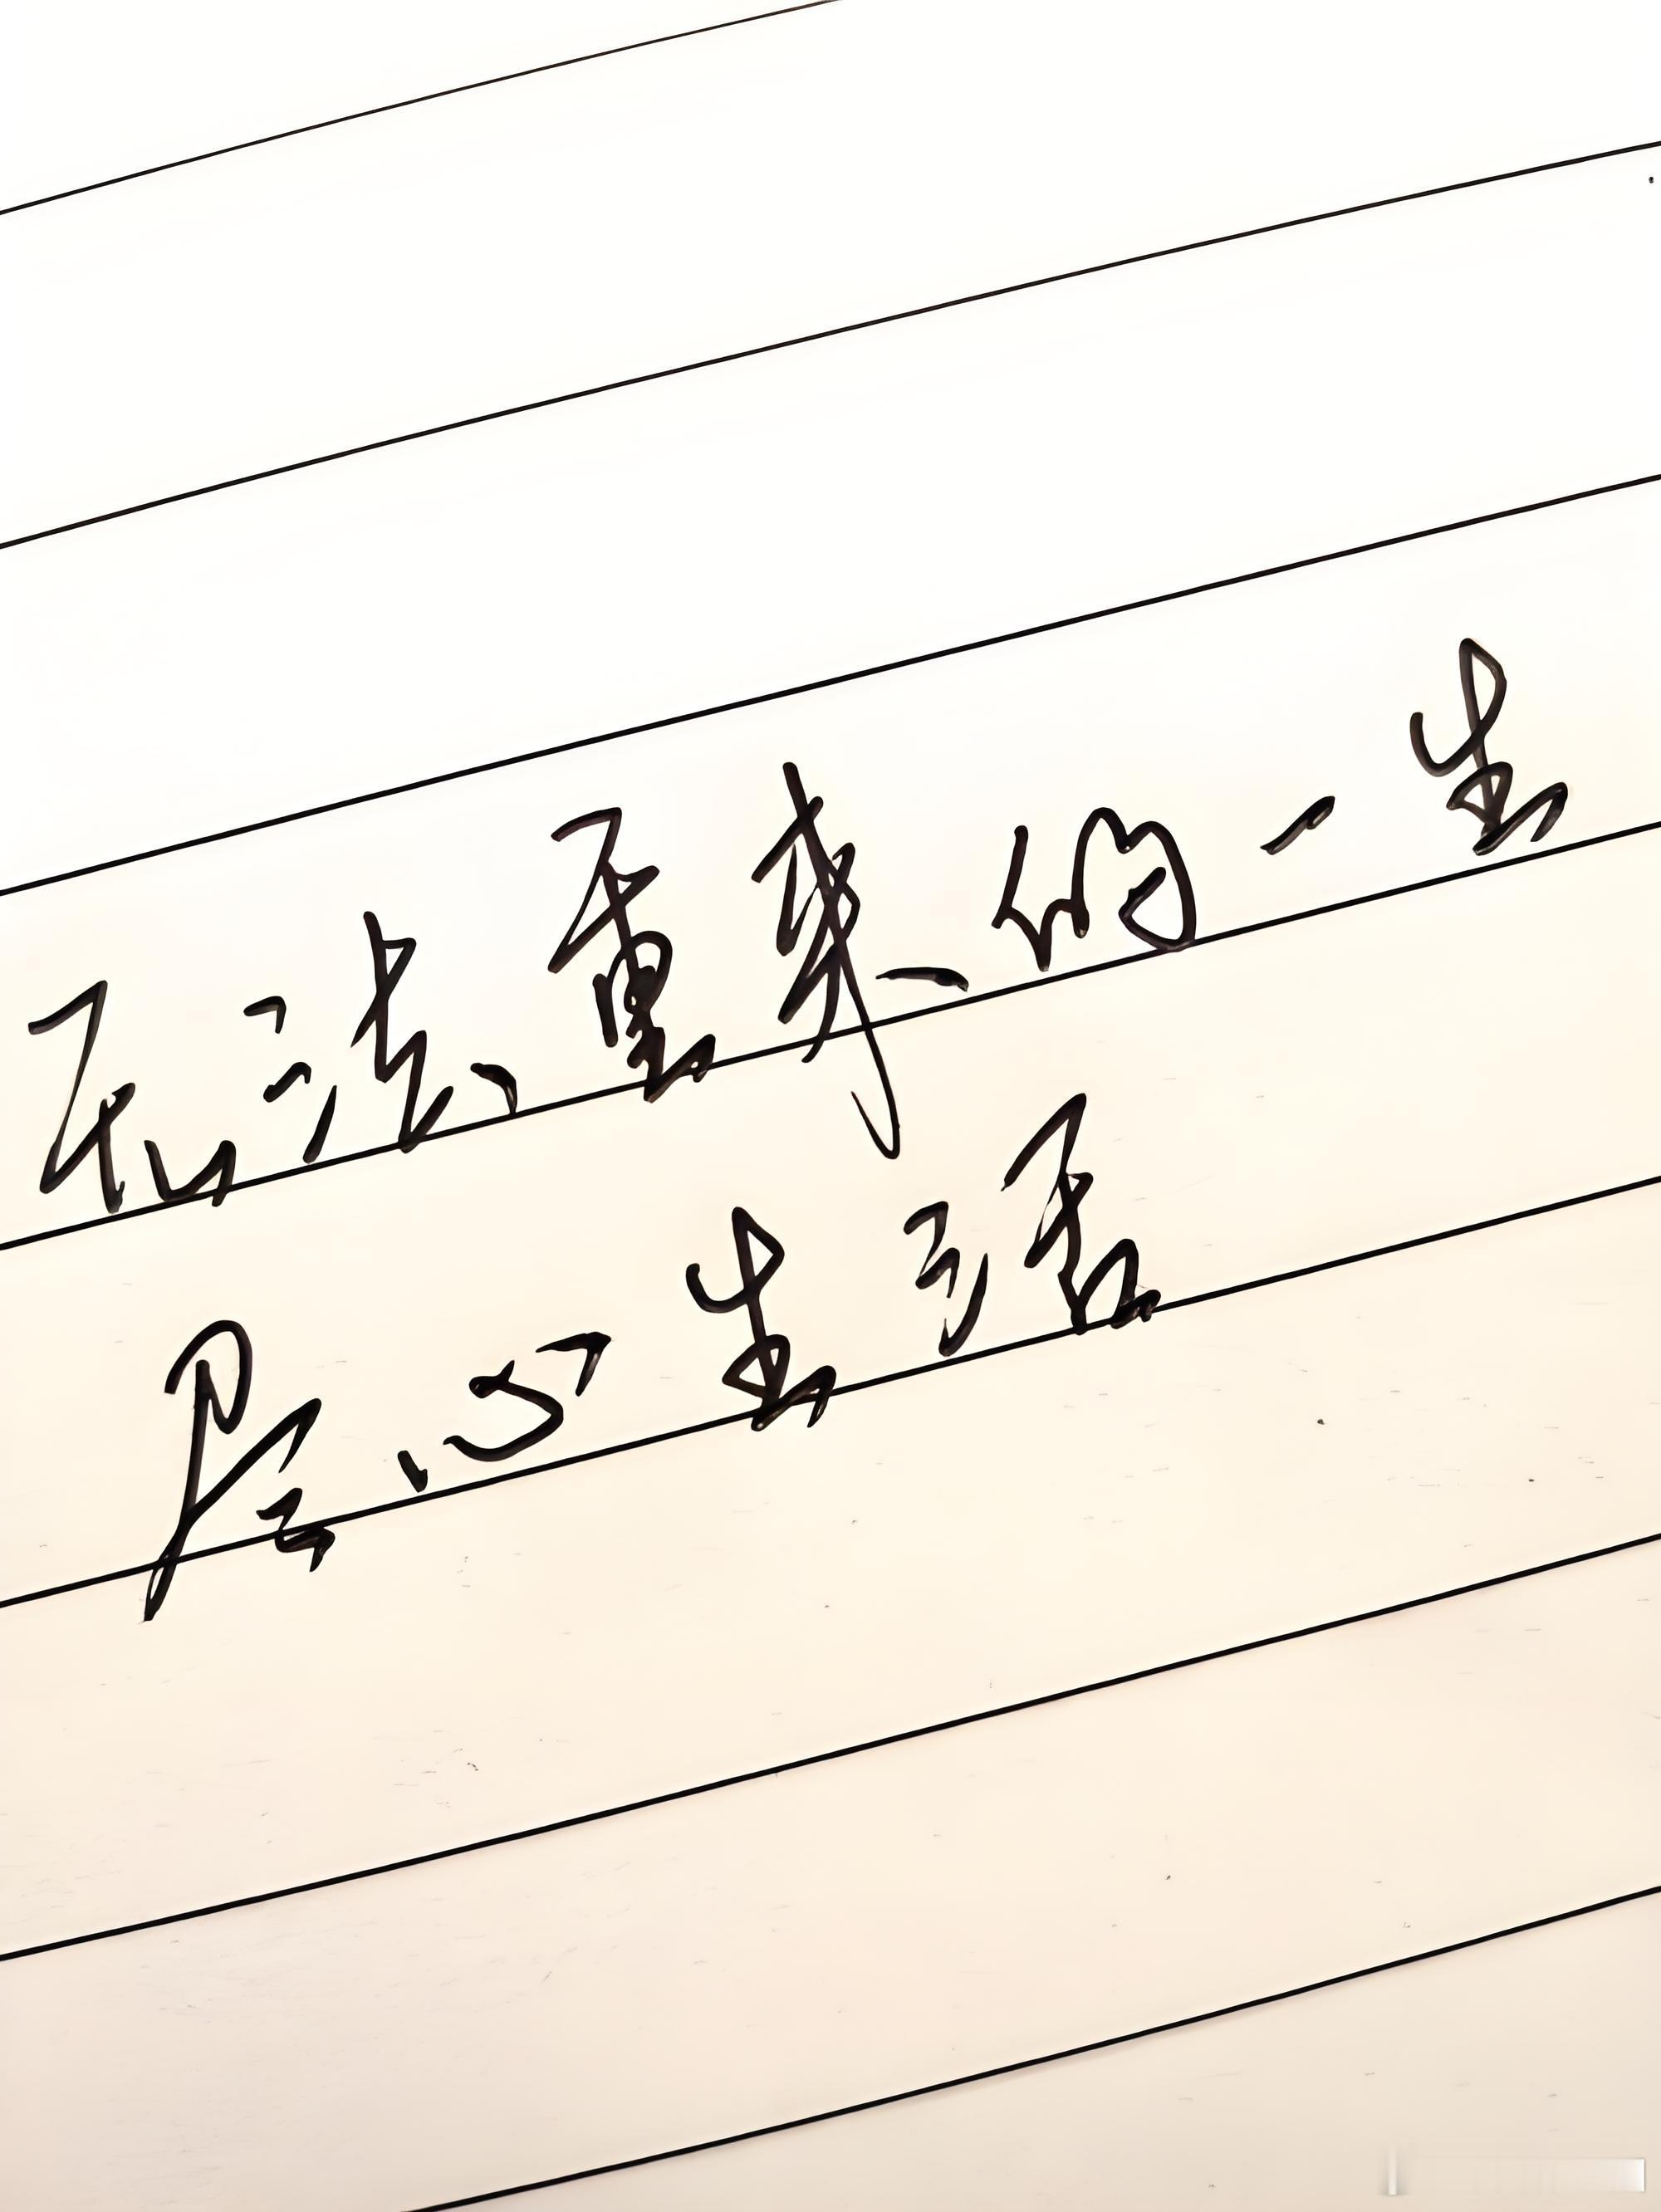 无法重来的一生
尽心生活